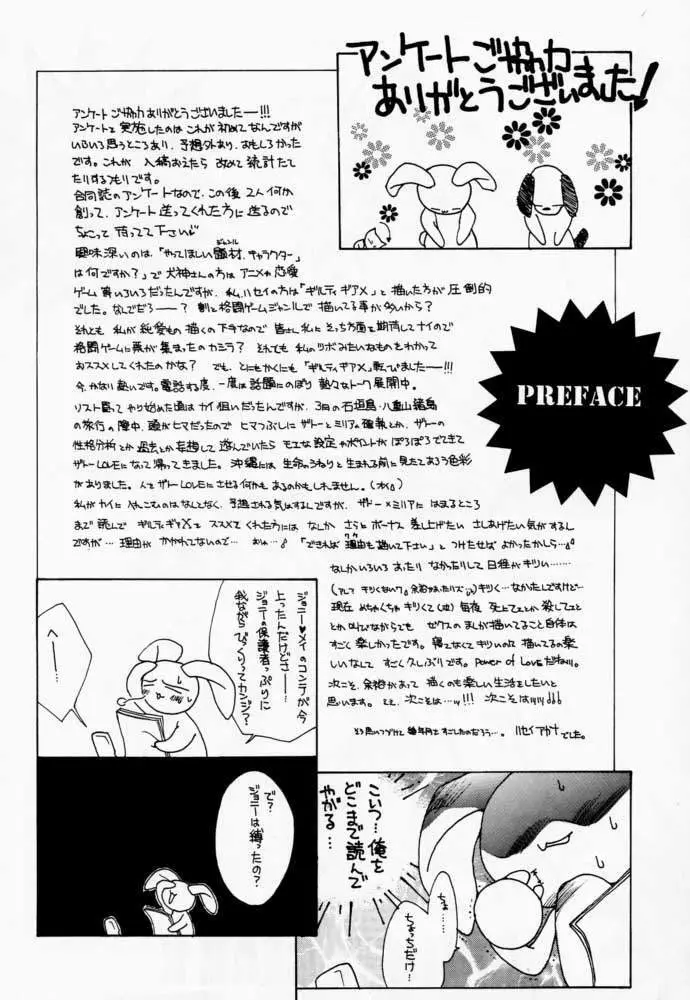 アンケートご協力
ありがとうございました!
アンケートご協力ありがとうございましたー!!!
アンケートを実施したのはこれが初めてなんですが
いろいろ思うところあり、予想外あり、おもしろかった
です。これが入稿おえたら改めて統計たて
たりするつもりです。
合同誌のアンケートなので、この後2人何か
創って、アンケート送ってくれた方に送るので
ちょこっと待ってて下さい
興味深いのは、「やってほしい題材、キャラクター
は何ですか?」で犬神さんの方はアニメや恋愛
ゲーム等いろいろだったんですが、私、ハセイの方は「ギルティギアX」と描いた方が圧倒的
でした。なんでだろー?割と格闘ゲームジャンルで描いてる事が多いから?
それとも私が純愛もの描くの下手なので皆さん私にそっち方面を期待してナイので
格闘ゲームに票が集まったのカシラ?それとも私のツボみたいなものをわかって
おススメしてくれたのかな?でも、とにもかくにも「ギルティギアX」転びましたー!!!
今、かなり熱いです。電話する度、一度は話題にのぼり熱クなトーク展開中。
PREFACE
リスト買ってやり始めた頃はカイ狙いだったんですが、3月の石垣島・八重山諸島
の旅行の障中、頭がヒマだったのでヒマつぶしにザトーとミリアの確執とか、ザトーの
性格分析とか過去とか妄想して遊んでいたらモエな設定やポイントがぽろぽろでてきて
ザトーLOVEになって帰ってきました。沖縄には生命のうねりと生まれる前に見たであろう色彩
がありました。人をザトーLOVEにさせる何かもあるのかもしれません。
私がカイに
なのはなんとなく、予想される気はするんですが、ザトー×ミリアにはまるところ
まで読んでギルティギアXをススメてくれた方にはなんかさらにボーナス差上げたいさしあげたい気がするん
ですが…理由がかかれてないので…
「できれば理由も描いて下さい」とつけたせばよかったかしら…
なんかいろいろあったりなかったりして日程がキツい……
キツく…なかたんですけど…
現在めちゃくちゃキツくて(泣)毎夜
とか叫びながらでも
まんが描いてること自体は
すごく楽しかったです。寝てなくてキツいのって描いてるの楽
しいなんてすごく久しぶりです。Power of Loveだねッ。
次こそ、余裕があって描くのも楽しい生活をしたいと
思います。ええ、次こそは…ッ!!!次こそはッッッ
そう思いつづけて
年すごしたのだろう…。ハセイアガナでした。
ジョニー♥メイのコンテが今
上ったんだけどさー…
ジョニーの保護者っぷりに
我ながらびっくりってカンジ?
へー…
で?
ジョニーは縛ったの?
こいつ…俺を
どこまで読んで
やがる…
ちょ…
ちょっちだけ…